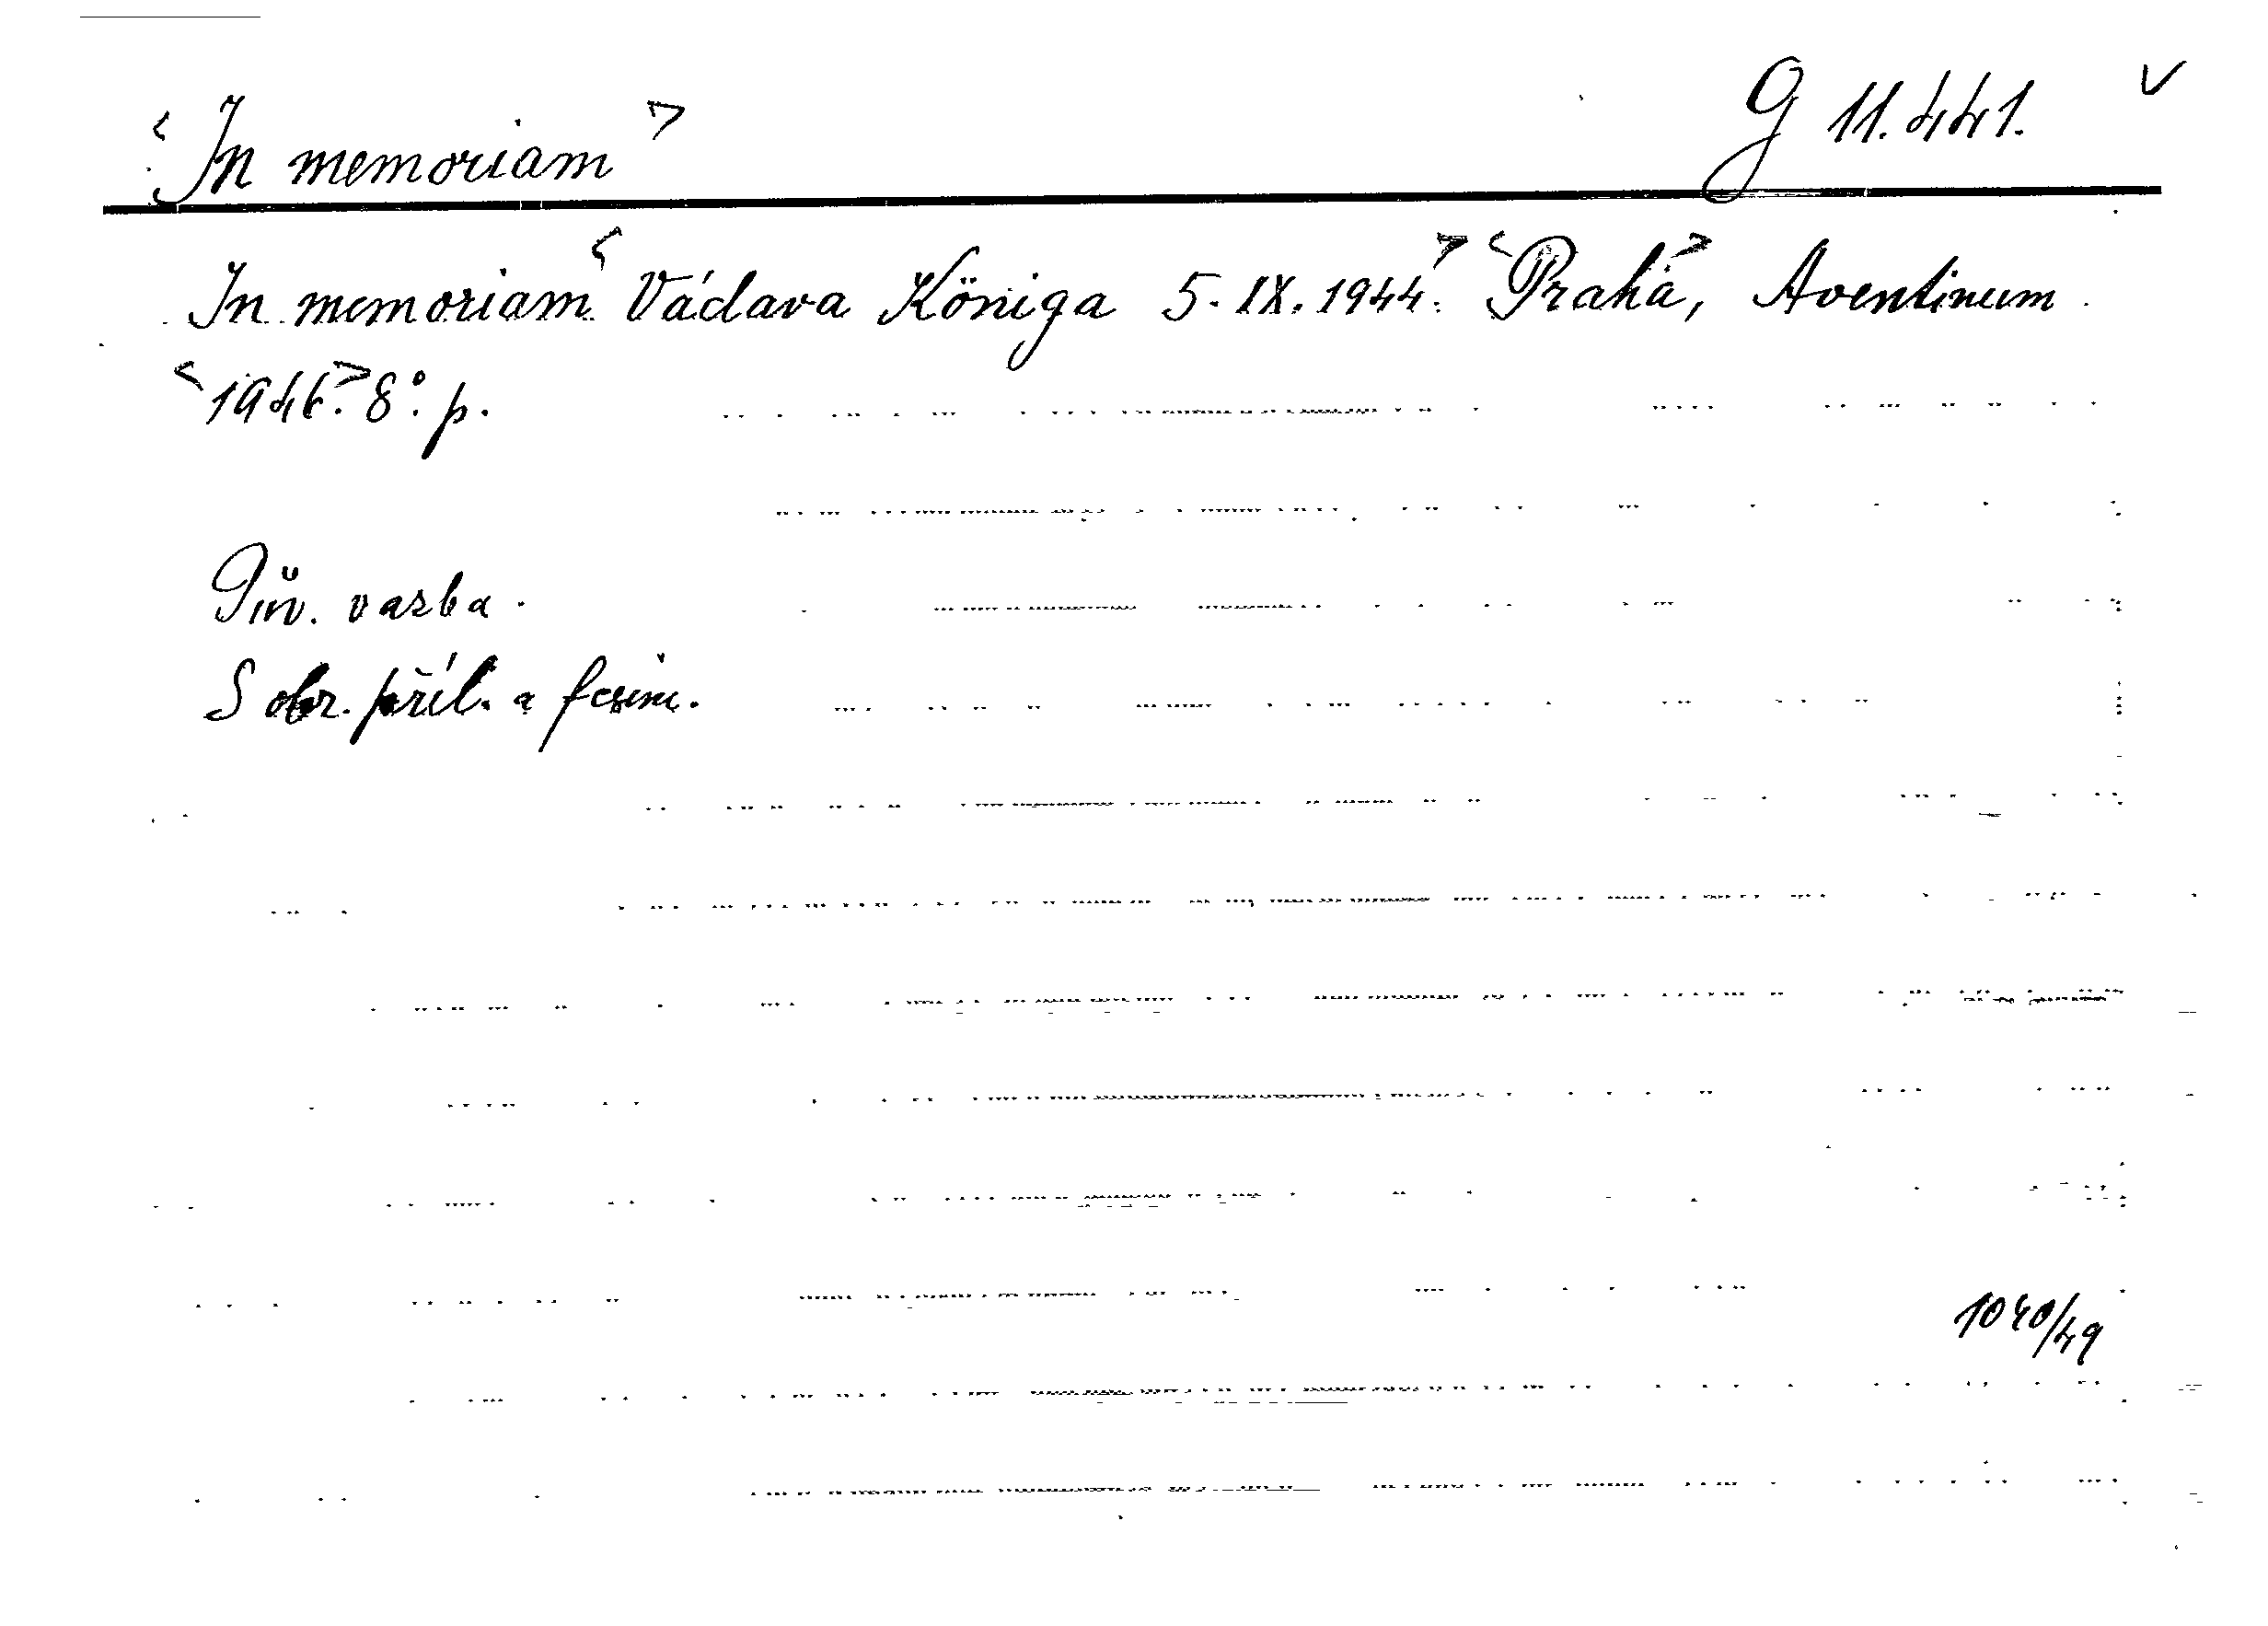 <In memoriam> G 11.441. ✓
In memoriam <Václava Königa 5. IX. 1944.> <Praha>, Aventinum
<1946.> 8°. p.
Pův. vazba.
S obr. příl. a fcsim.
1040/49